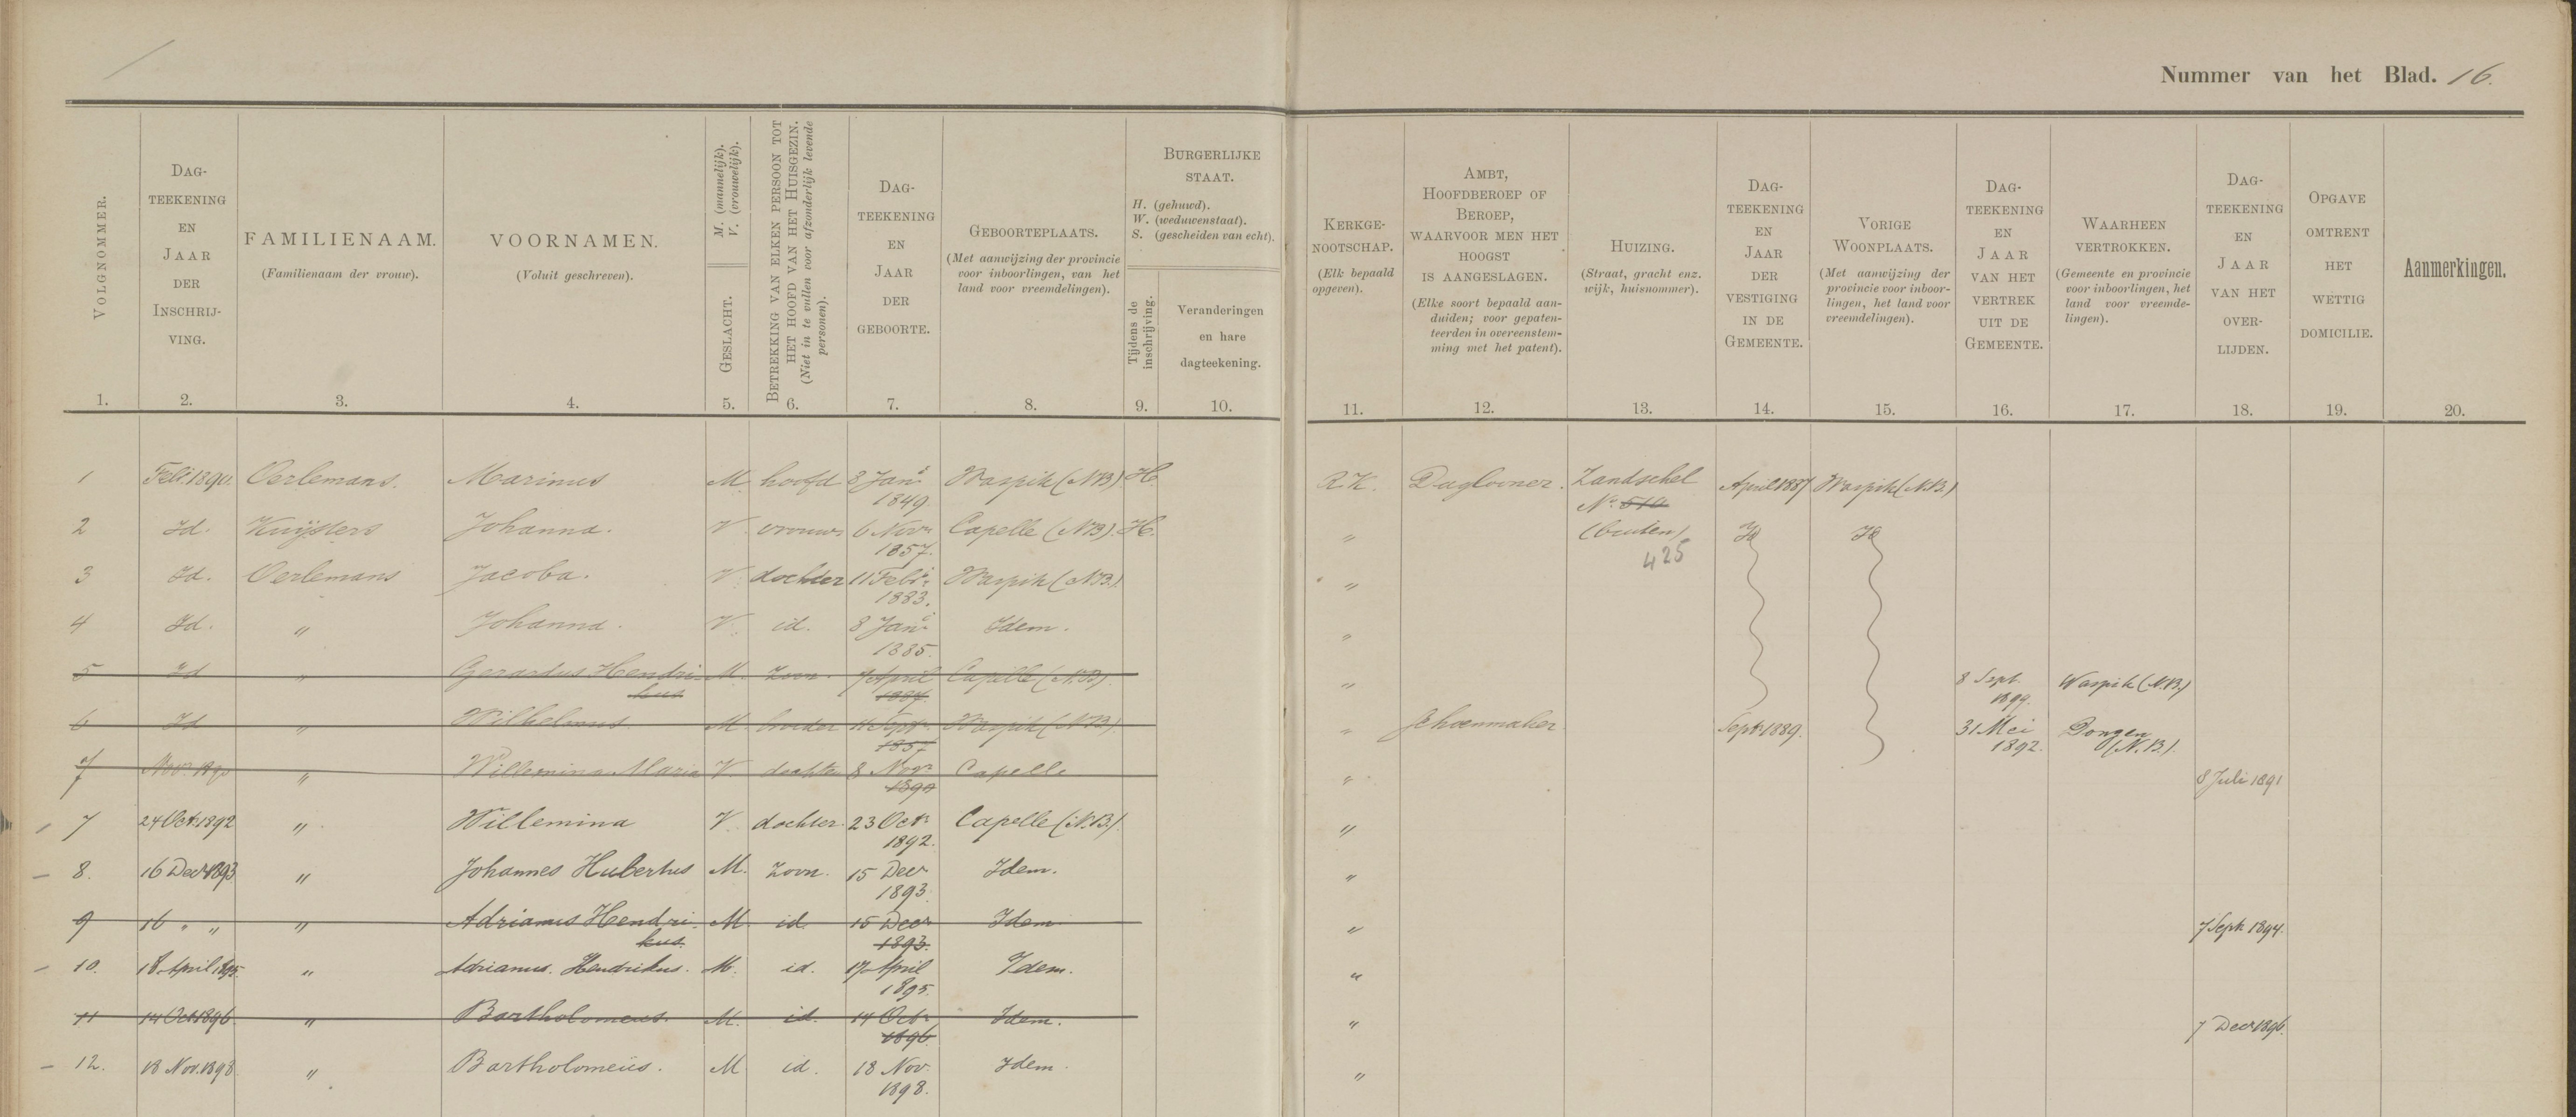 Nummer van het Blad. 16.
VOLGNOMMER.
1.
DAG-
TEEKENING
EN
JAAR
DER
INSCHRIJ-
VING.
2.
FAMILIENAAM.
(Familienaam der vrouw).
3.
VOORNAMEN.
(Voluit geschreven).
4.
M. (mannelijk).
V. (vrouwelijk).
GESLACHT.
5.
BETREKKING VAN ELKEN PERSOON TOT
HET HOOFD VAN HET HUISGEZIN.
(Niet in te vullen voor afzonderlijk levende
personen).
6.
DAG-
TEEKENING
EN
JAAR
DER
GEBOORTE.
7.
GEBOORTEPLAATS.
(Met aanwijzing der provincie
voor inboorlingen, van het
land voor vreemdelingen).
8.
BURGERLIJKE
STAAT.
H. (gehuwd).
W. (weduwenstaat).
S. (gescheiden van echt).
Tijdens de
inschrijving.
9.
Veranderingen
en hare
dagteekening.
10.
KERKGE-
NOOTSCHAP.
(Elk bepaald
opgeven).
11.
AMBT,
HOOFDBEROEP OF
BEROEP,
WAARVOOR MEN HET
HOOGST
IS AANGESLAGEN.
(Elke soort bepaald aan-
duiden; voor gepaten-
teerden in overeenstem-
ming met het patent).
12.
HUIZING.
(Straat, gracht enz.
wijk, huisnommer).
13.
DAG-
TEEKENING
EN
JAAR
DER
VESTIGING
IN DE
GEMEENTE.
14.
VORIGE
WOONPLAATS.
(Met aanwijzing der
provincie voor inboor-
lingen, het land voor
vreemdelingen).
15.
DAG-
TEEKENING
EN
JAAR
VAN HET
VERTREK
UIT DE
GEMEENTE.
16.
WAARHEEN
VERTROKKEN.
(Gemeente en provincie
voor inboorlingen, het
land voor vreemde-
lingen).
17.
DAG-
TEEKENING
EN
JAAR
VAN HET
OVER-
LIJDEN.
18.
OPGAVE
OMTRENT
HET
WETTIG
DOMICILIE.
19.
Aanmerkingen.
20.
1 Febr. 1890. Oerlemans. Marinus M. hoofd 8 Jan. Waspik (NB). H. R.K. Daglooner. Zandschel April 1887 Waspik (N.B.)
1849. No 510
2 Id. Kuijsters Johanna. V. vrouw 6 Nov. Capelle (NB). H. " (buiten) Id Id
1857. 425
3 Id. Oerlemans Jacoba. V. dochter 11 Feb. Waspik (NB). "
1883.
4 Id. " Johanna. V. id. 8 Jan. Idem. "
1885.
5 Id " Gerardus Hendri- M. zoon. 7 April Capelle (NB) " 8 Sept. Waspik (N.B.)
kus 1887. 1899.
6 Id " Wilhelmus M. broeder 11 Sept. Waspik (NB). " Schoenmaker Sept. 1889. 31 Mei Dongen
1857 1892. (N.B.).
7 Nov. 1890 " Willemina Maria V. dochter 8 Nov. Capelle " 8 Juli 1891
1890
7 24 Oct. 1892 " Willemina V. dochter. 23 Oct. Capelle (N.B.). "
1892.
8. 16 Decr 1893 " Johannes Hubertus M. zoon. 15 Decr Idem. "
1893.
9 16 " " " Adrianus Hendri- M. id. 15 Decr Idem " 7 Sept. 1894.
kus. 1893.
10. 18 April 1895. " Adrianus. Hendrikus. M. id. 17 April Idem. "
1895.
11 14 Oct. 1896. " Bartholomeus. M. id. 14 Oct. Idem. " 7 Decr 1896.
1896.
12. 18 Nov. 1898 " Bartholomeüs. M. id. 18 Nov. Idem. "
1898.